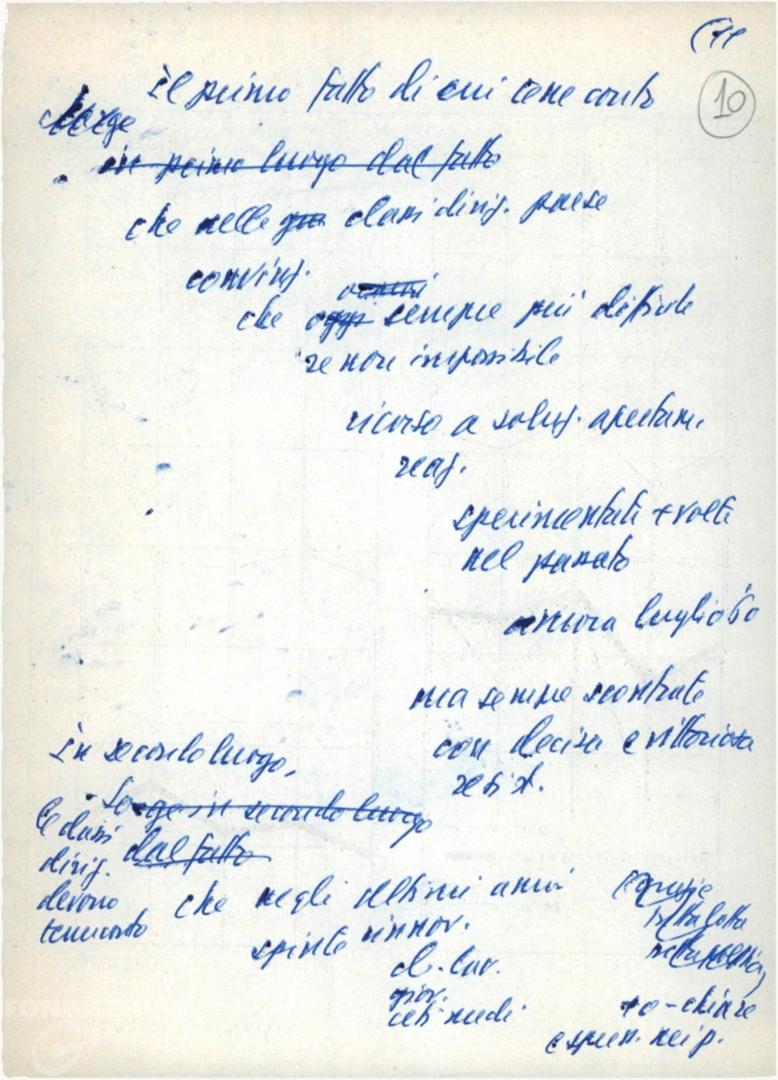 10
Il primo fatto di cui tener conto
Sorge
in primo luogo dal fatto
che nelle classi dirig. paese
convinz.
che oggi sempre più difficile
se non impossibile
ricorso a soluz. apertam.
reaz.
sperimentate + volte
nel passato
ancora luglio 60
ma sempre scontrate
con decisa e vittoriosa
resist.
In secondo luogo,
Sorge in secondo luogo
le classi
dirig. dal fatto
devono
tener conto che negli ultimi anni
spinte rinnov.
cl. lav.
giov.
ceti medi
grazie
+ o - chiare
espress. nei p.